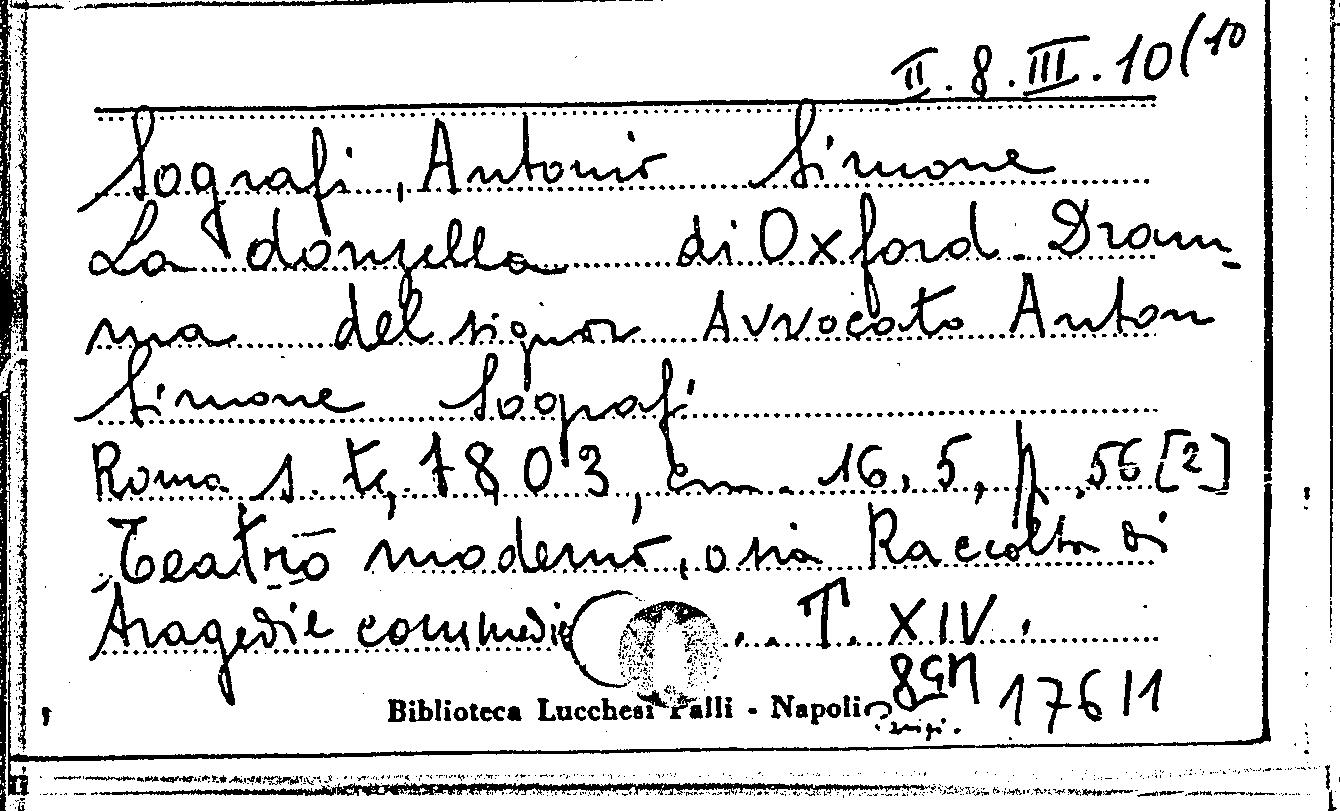 II.8.III.10(10
Sografi, Antonio Simone
La donzella di Oxford. Dram-
ma del signor Avvocato Anton
Simone Sografi
Roma s. t., 1803, cm. 16,5, p. 56 [2]
Teatro moderno, o sia Raccolta di
Tragedie commedie ... T. XIV.
Biblioteca Lucchesi Palli - Napoli
17611